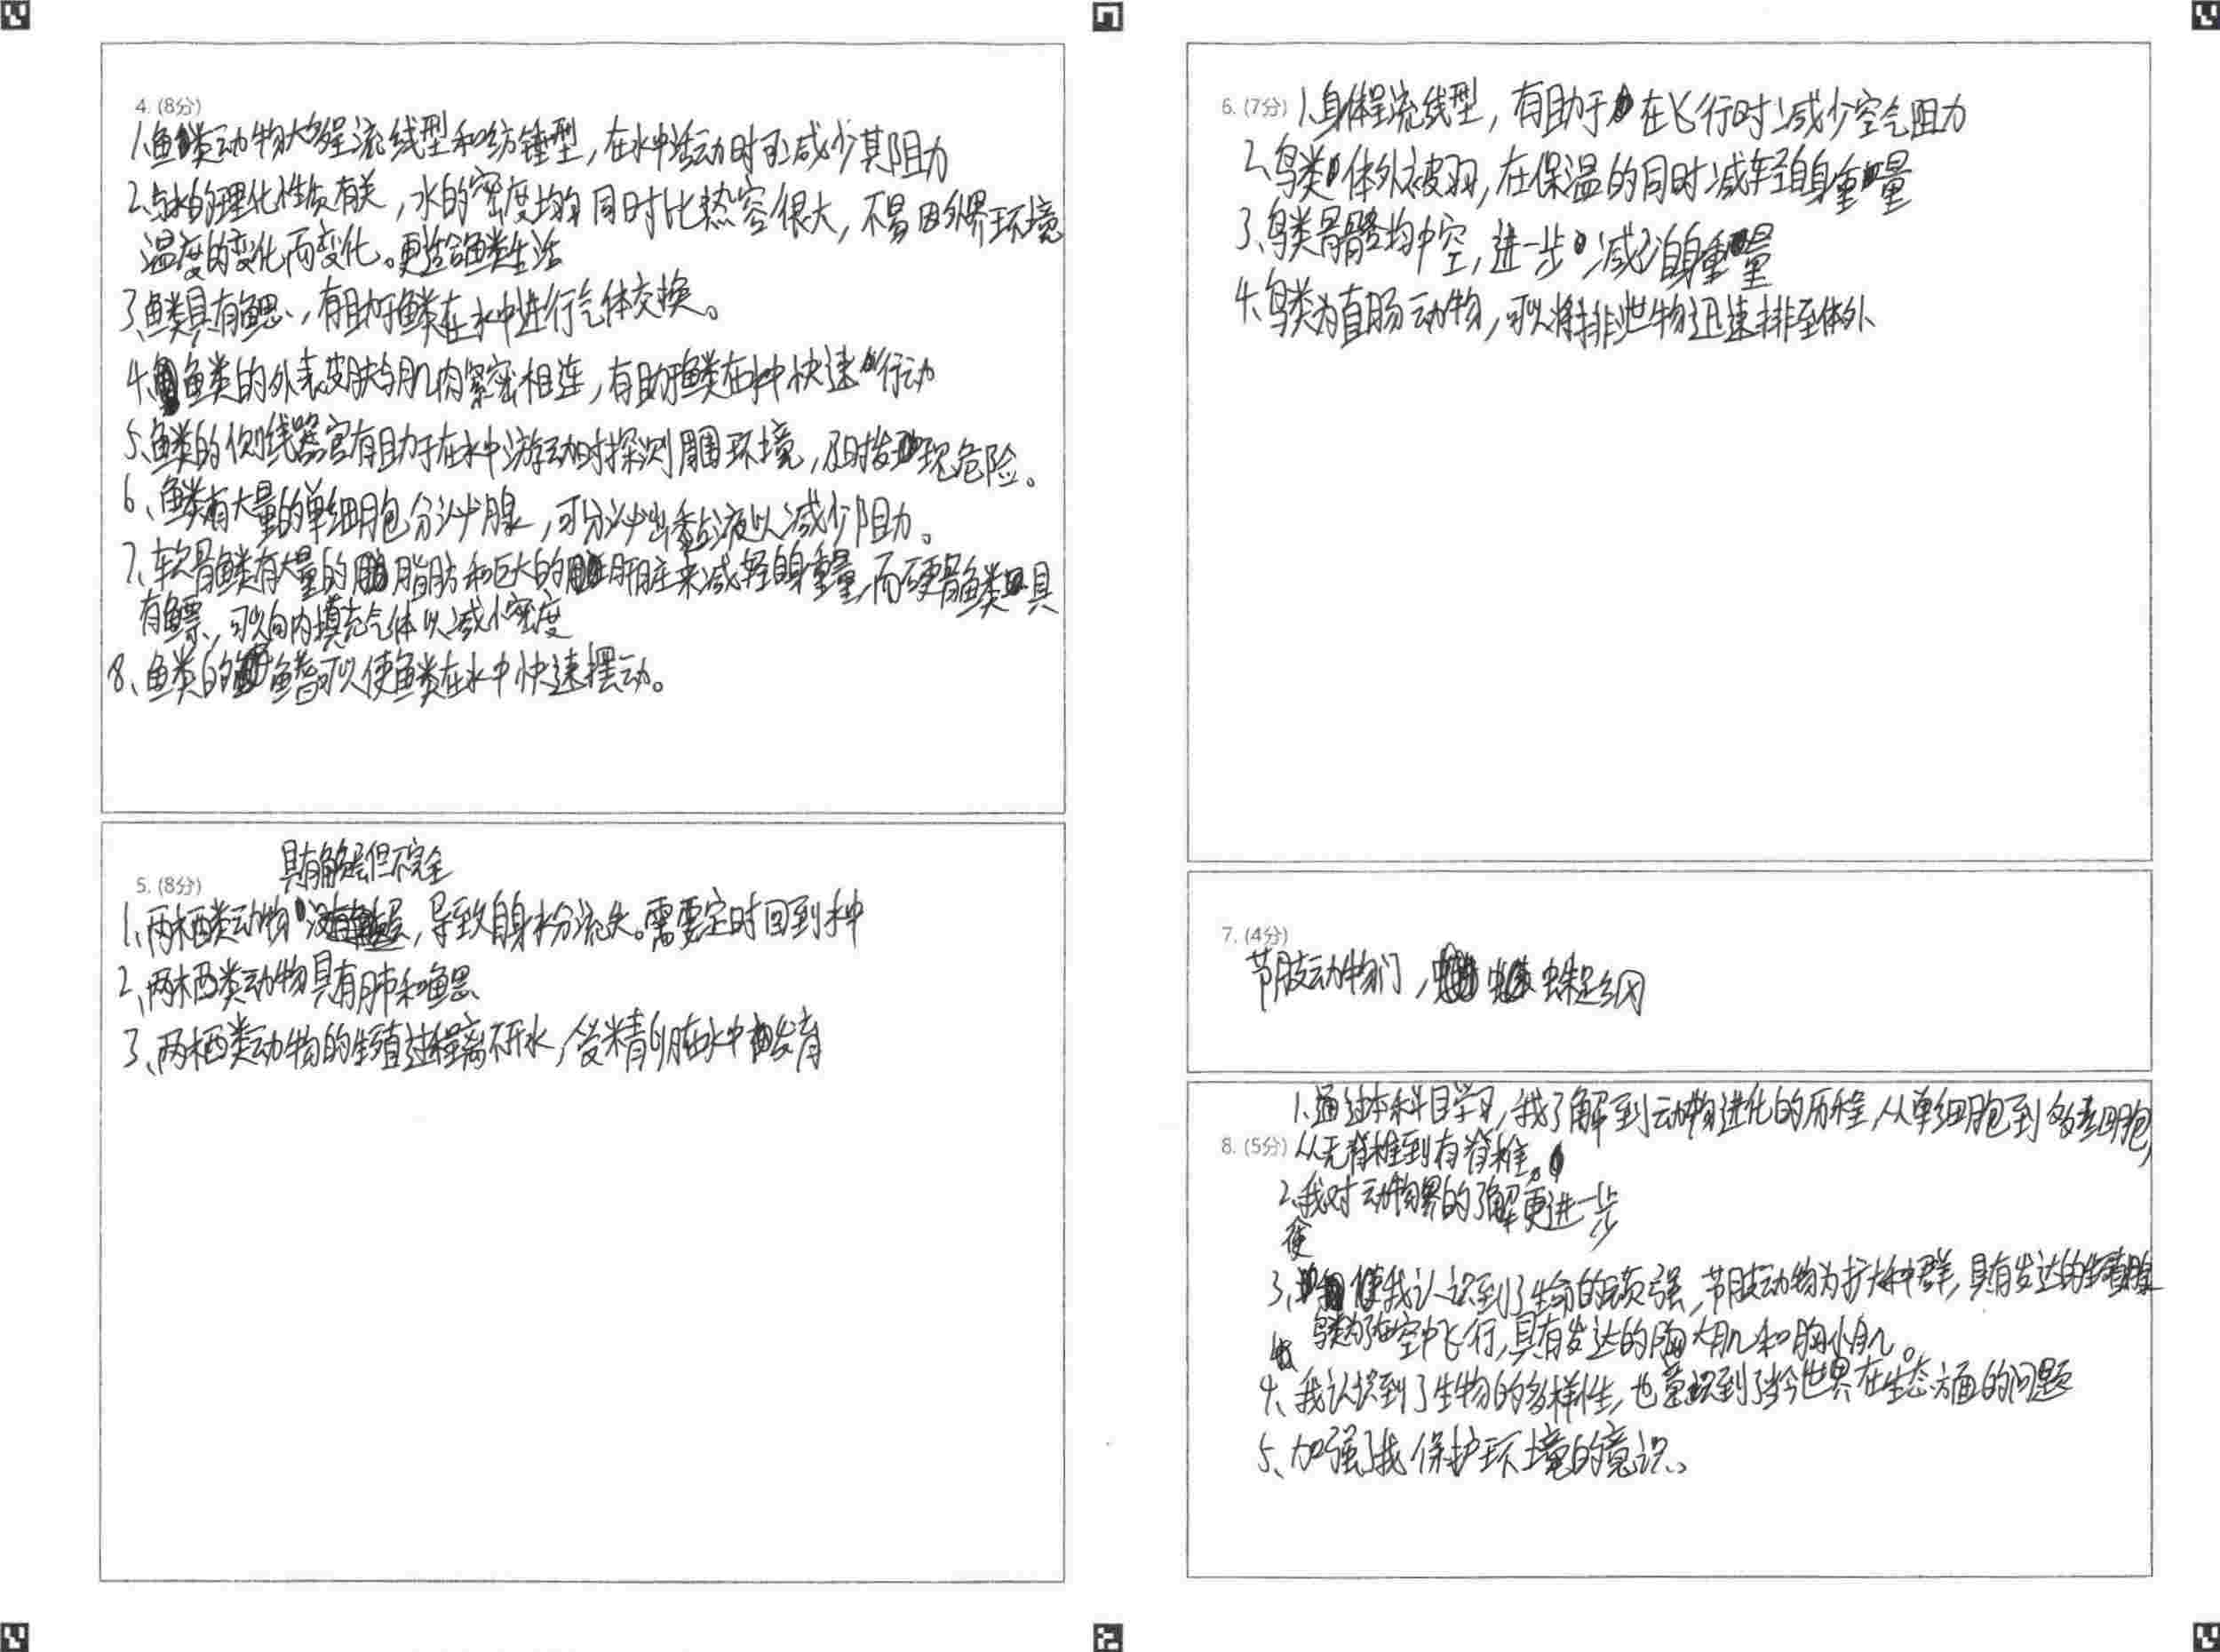 4. (8分)
1.鱼类动物大多呈流线型和纺锤型,在水中活动时可减少其阻力
2.与水的理化性质有关,水的密度均匀同时比热容很大,不易因外界环境
温度的变化而变化。更适合鱼类生活
3、鱼类具有鳃,有助于鱼类在水中进行气体交换。
4.鱼类的外表皮肤与肌肉紧密相连,有助于鱼类在水中快速行动
5、鱼类的侧线器官有助于在水中游动时探测周围环境,及时发现危险。
6、鱼类有大量的单细胞分泌腺,可分泌出黏液以减少阻力。
7、软骨鱼类有大量的脂肪和巨大的肝脏来减轻自身重量,而硬骨鱼类具
有鳔,可以向内填充气体以减小密度
8、鱼类的鳍可以使鱼类在水中快速摆动。
5. (8分)
具有角质层但不完全
1、两栖类动物,导致自身水分流失。需要定时回到水中
2、两栖类动物具有肺和鳃
3、两栖类动物的生殖过程离不开水,受精卵在水中发育
6. (7分) 1.身体呈流线型,有助于在飞行时减少空气阻力
2、鸟类体外被羽,在保温的同时减轻自身重量
3、鸟类骨骼均中空,进一步减少自身重量
4、鸟类为直肠动物,可以将排泄物迅速排至体外
7. (4分)
节肢动物门,蛛形纲
1.通过本科目学习,我了解到动物进化的历程,从单细胞到多细胞,
8. (5分) 从无脊椎到有脊椎。
2.我对动物界的了解更进一步
使
3、使我认识到了生命的顽强,节肢动物为扩大种群,具有发达的生殖腺
鸟类为了在空中飞行,具有发达的胸大肌和胸小肌。
4、我认识到了生物的多样性,也意识到了当今世界在生态方面的问题
5、加强了我保护环境的意识。